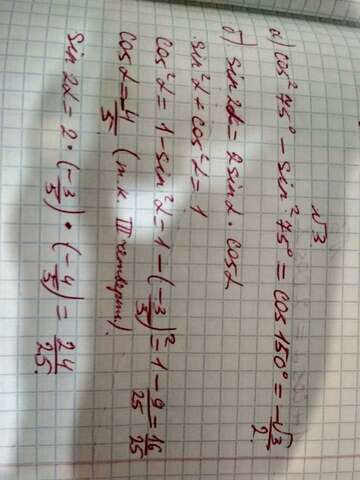 √3
а) cos²75° - sin²75° = cos 150° = -√3/2.
б) sin2α = 2sinα · cosα
sin²α + cos²α = 1
cos²α = 1 - sin²α = 1 - (-3/5)² = 1 - 9/25 = 16/25
cosα = -4/5 (т.к. III четверти).
sin2α = 2 · (-3/5) · (-4/5) = 24/25.